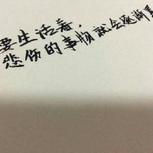 要生活着，
悲伤的事物就会愿